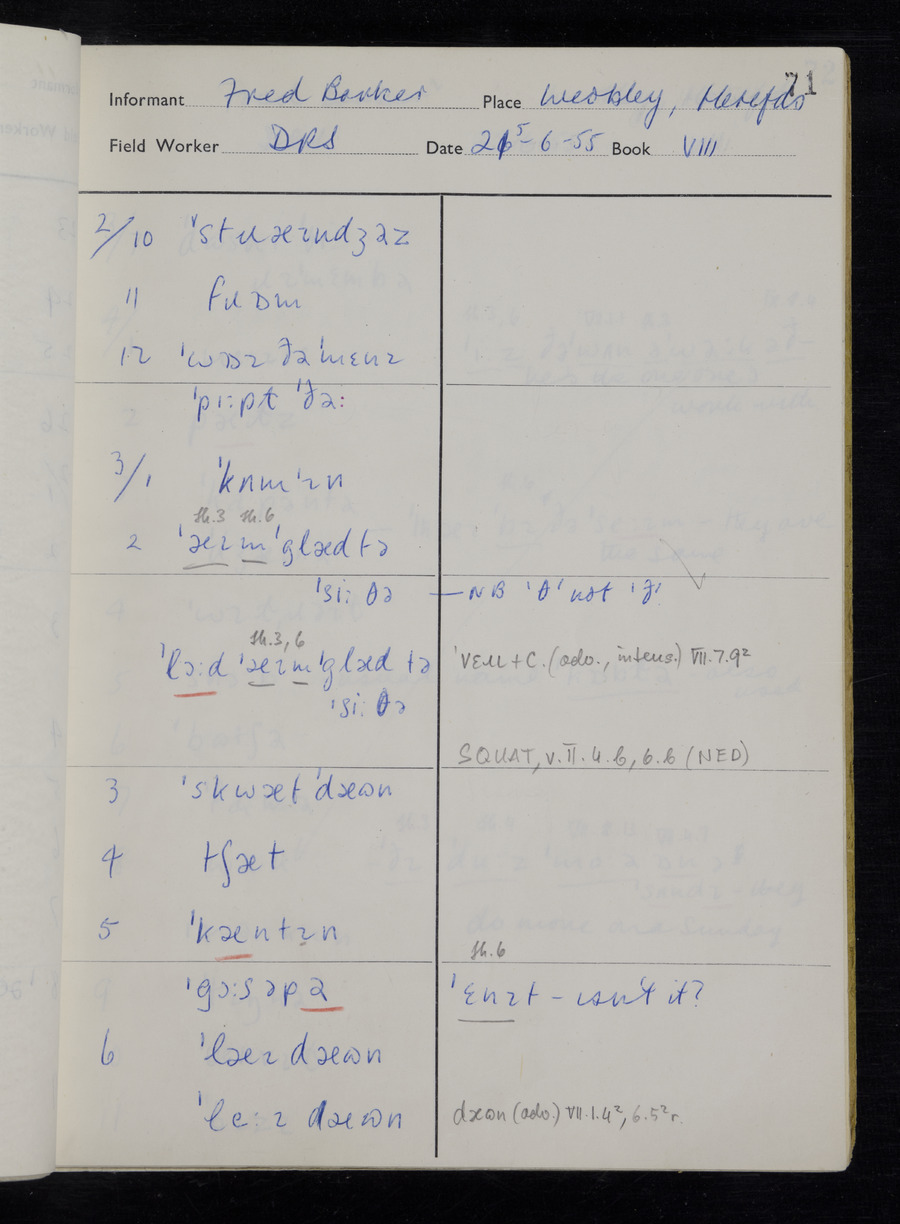 71
Informant Fred Barker Place Weobley, Herefds
Field Worker DRS Date 25-6-55 Book VIII
2/10 ˈstɹæɪndʒəz
11 fɹɒm
12 ˈwɒz ðəˈmɛnɪ
ˈpɪ:pt ˈðə:
3/1 ˈkʌmˈɪn
sh.3 sh.6
2 ˈæɪmˈglæd tə
ˈsi: ðə — NB 'θ' not 'ð'
sh.3, 6
ˈɹə:d ˈæɪmˈglæd tə ˈvɛɹɪ + C. (adv., intens.) VII.7.9²
ˈsi: θə
SQUAT, v. II.4.b, 6.b (NED)
3 ˈskwæt ˈdæʊn
4 tʃæt
5 ˈkæntɪn
sh.6
ˈgɔ:səpə ˈɛnɪt – isn't it?
6 ˈlæɪ dæʊn
ˈle:ɪ dæʊn dæʊn (adv.) VII.1.4², 6.5² r.